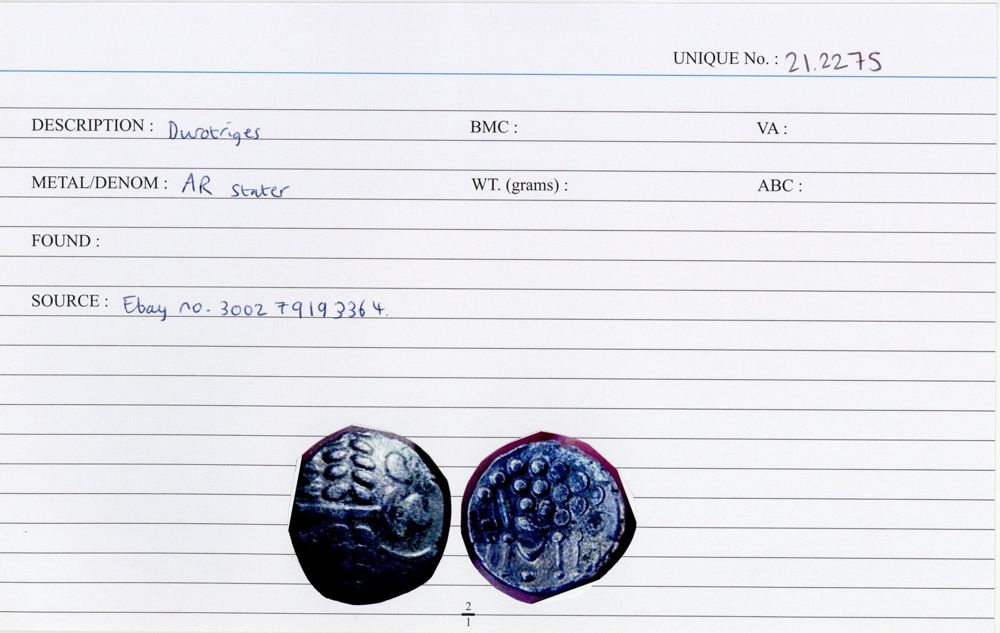 UNIQUE No. : 21.2275
DESCRIPTION : Durotriges BMC : VA :
METAL/DENOM : AR stater WT. (grams) : ABC :
FOUND :
SOURCE : Ebay no. 3002 79193364.
2
1